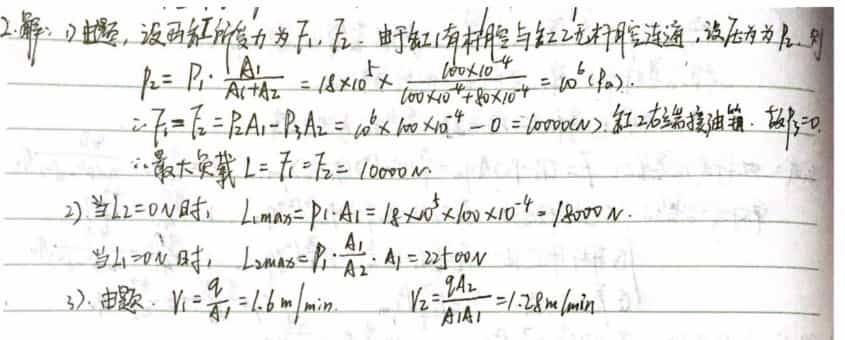 2.解: 1) 由题, 设两缸所受力为F₁, F₂. 由于缸1有杆腔与缸2无杆腔连通, 设压力为P₂. 则
P₂ = P₁·A₁/(A₁+A₂) = 18×10⁵ × (100×10⁻⁴)/(100×10⁻⁴+80×10⁻⁴) = 10⁶(Pa).
∴F₁=F₂=P₂A₁-P₃A₂=10⁶×100×10⁻⁴-0=10000(N). 缸2右端接油箱. 故P₃=0.
∴最大负载L=F₁=F₂=10000N.
2) 当L₂=0N时, L₁max=P₁·A₁=18×10⁵×100×10⁻⁴=18000N.
当L₁=0N时, L₂max=P₁·A₁/A₂·A₁=22500N
3). 由题. V₁=q/A₁=1.6m/min. V₂=qA₂/A₁A₁=1.28m/min